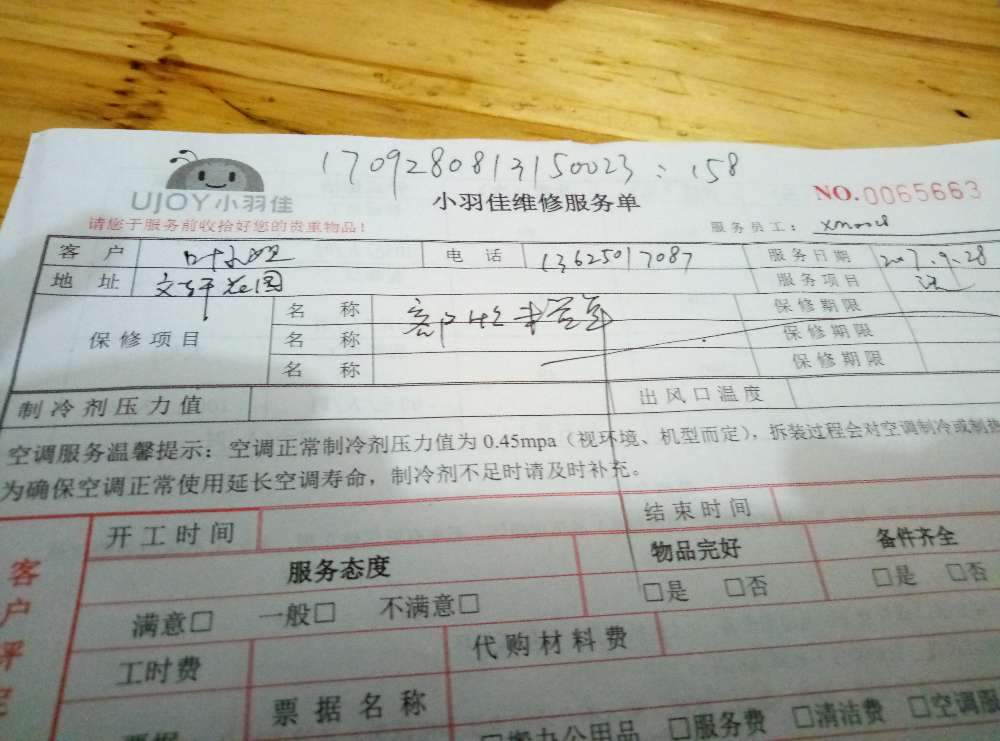 1709280813150023:158
UJOY小羽佳
小羽佳维修服务单
NO.0065663
请您于服务前收拾好您的贵重物品!
服务员工:
客户 电话 13625017087 服务日期 2017.9.28
地址 文轩花园 服务项目
保修项目 名称 保修期限
名称 保修期限
名称 保修期限
制冷剂压力值 出风口温度
空调服务温馨提示:空调正常制冷剂压力值为0.45mpa(视环境、机型而定),拆装过程会对空调制冷或制热
为确保空调正常使用延长空调寿命,制冷剂不足时请及时补充。
客户评定
开工时间 结束时间
服务态度 物品完好 备件齐全
满意□ 一般□ 不满意□ □是 □否 □是 □否
工时费 代购材料费
票据 票据名称
□搬办公用品 □服务费 □清洁费 □空调服